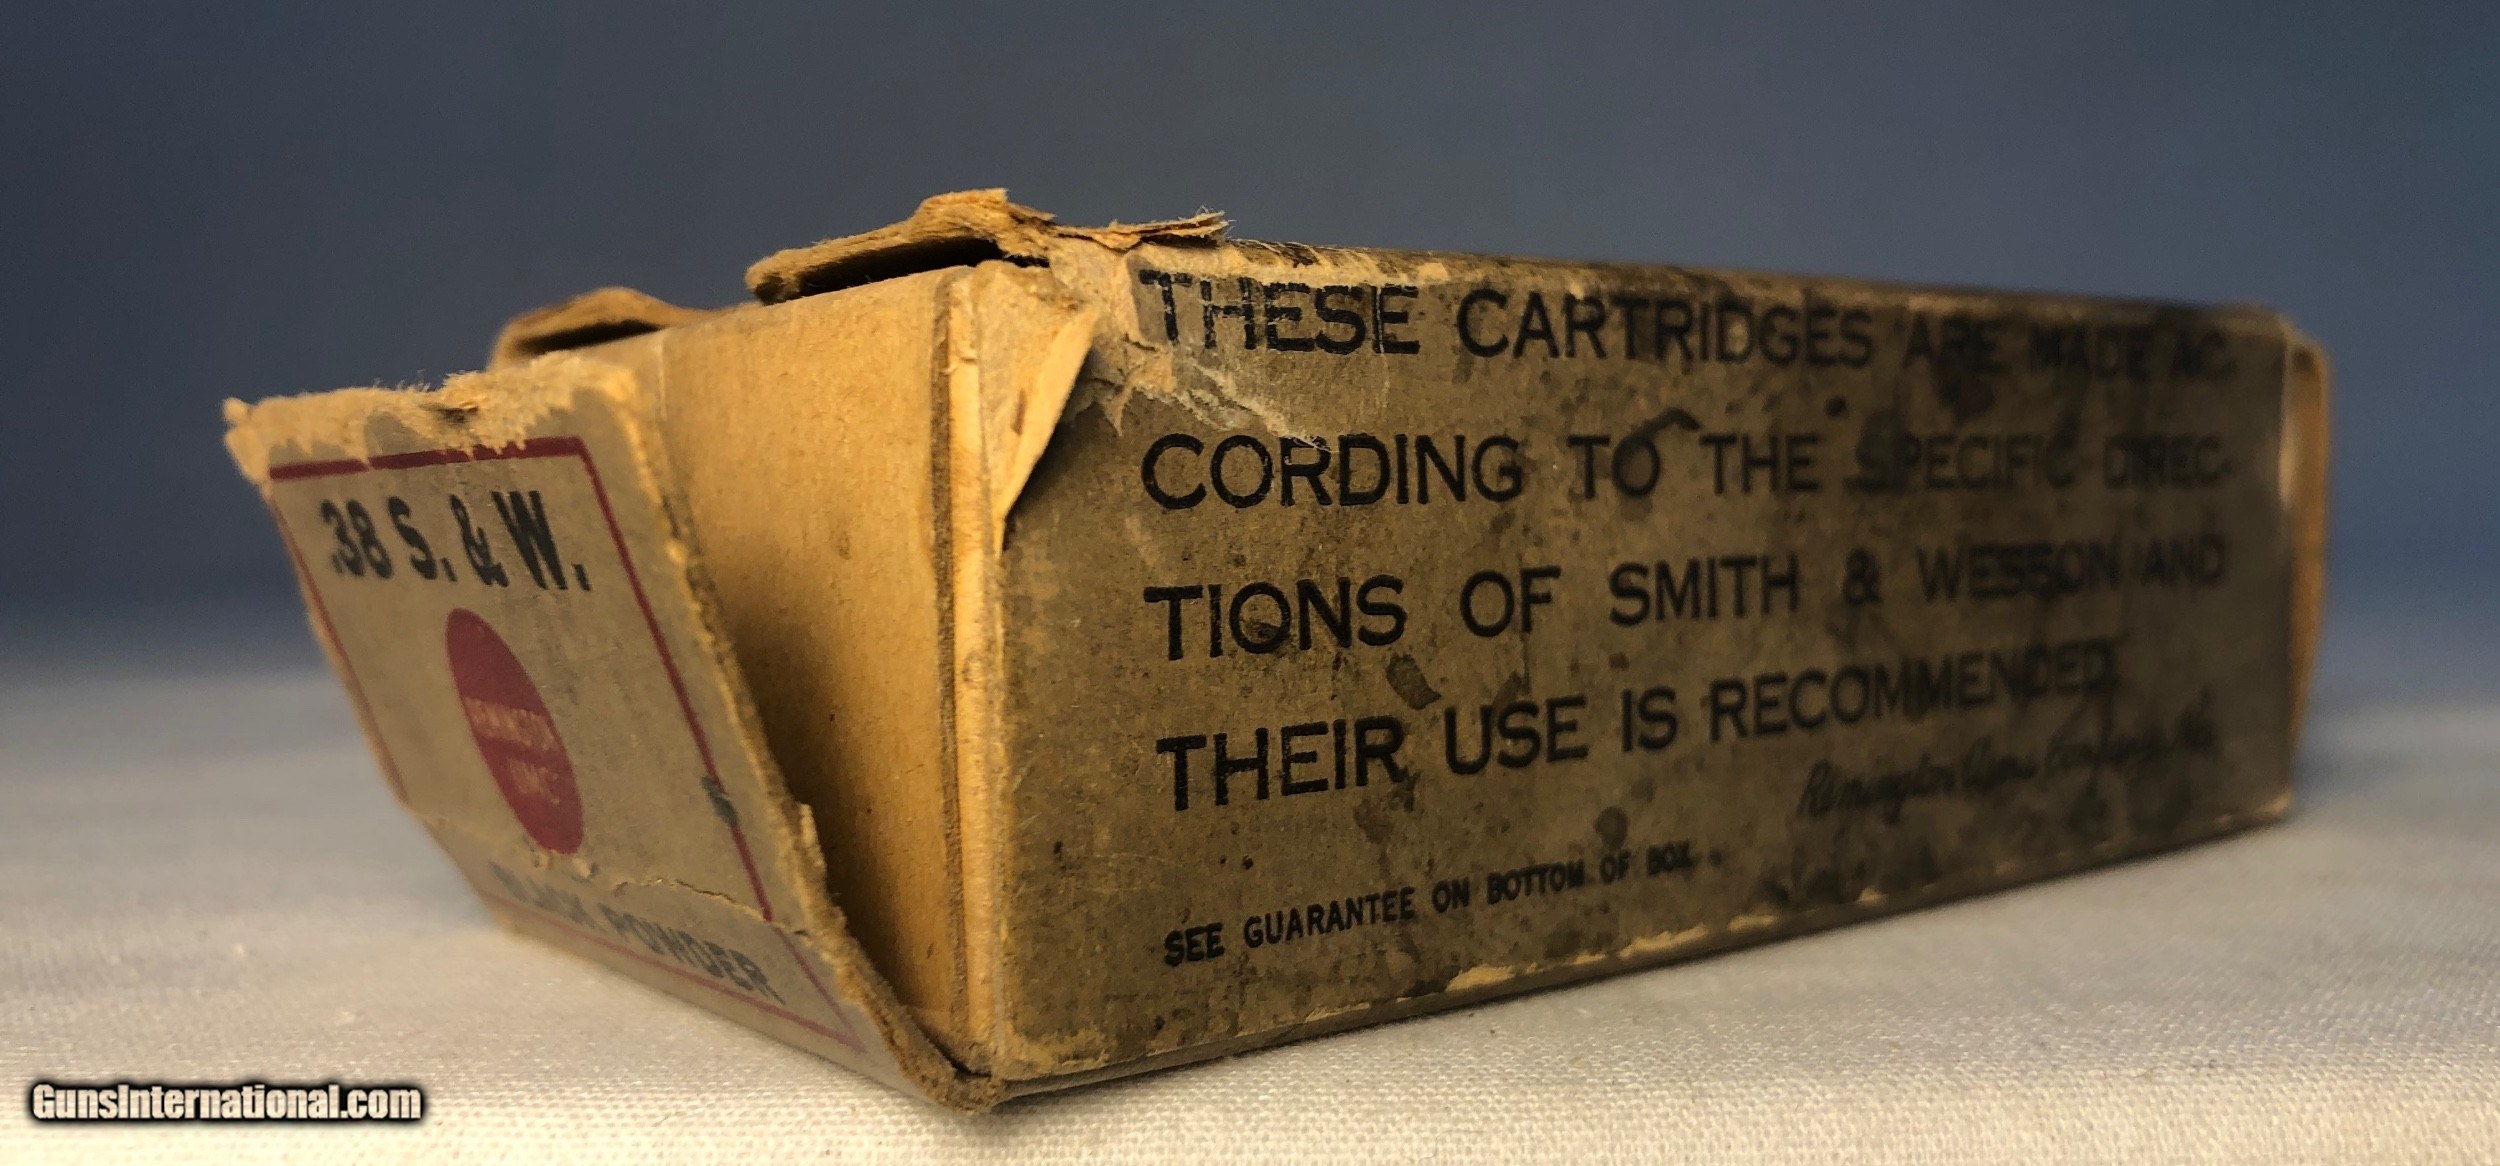 .38 S. & W.
REMINGTON
UMC
BLACK POWDER
THESE CARTRIDGES ARE MADE AC-
CORDING TO THE SPECIFIC DIREC-
TIONS OF SMITH & WESSON AND
THEIR USE IS RECOMMENDED.
Remington Arms Company, Inc.
SEE GUARANTEE ON BOTTOM OF BOX.
GunsInternational.com